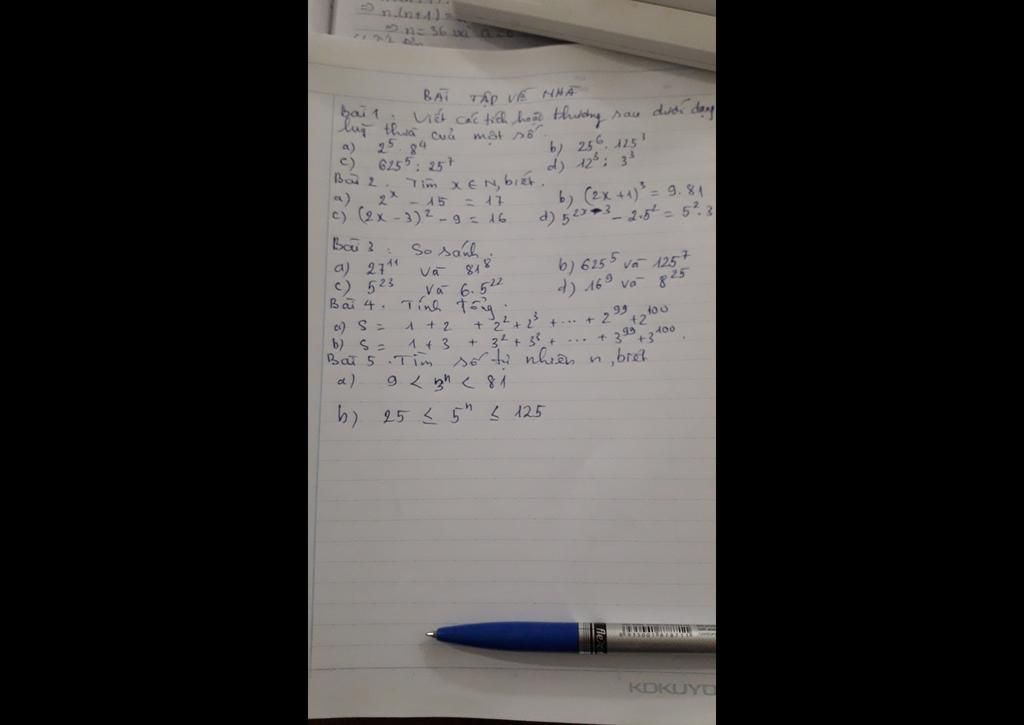 ⇒ n.(n+1) =
⇒ n = 36 và
BÀI TẬP VỀ NHÀ
Bài 1 : Viết các tích hoặc thương sau dưới dạng
luỹ thừa của một số.
a) 2⁵ . 8⁴ b) 25⁶ . 125³
c) 625⁵ : 25⁷ d) 12³ : 3³
Bài 2 . Tìm x ∈ N, biết .
a) 2ˣ - 15 = 17 b) (2x + 1)³ = 9 . 81
c) (2x - 3)² - 9 = 16 d) 5²ˣ⁻³ - 2.5² = 5² . 3
Bài 3 : So sánh .
a) 27¹¹ và 81⁸ b) 625⁵ và 125⁷
c) 5²³ và 6. 5²² d) 16⁹ và 8²⁵
Bài 4 . Tính tổng .
a) S = 1 + 2 + 2² + 2³ + ... + 2⁹⁹ + 2¹⁰⁰
b) S = 1 + 3 + 3² + 3³ + ... + 3⁹⁹ + 3¹⁰⁰ .
Bài 5 . Tìm số tự nhiên n , biết
a) 9 < 3ⁿ < 81
b) 25 ≤ 5ⁿ ≤ 125
KOKUYO